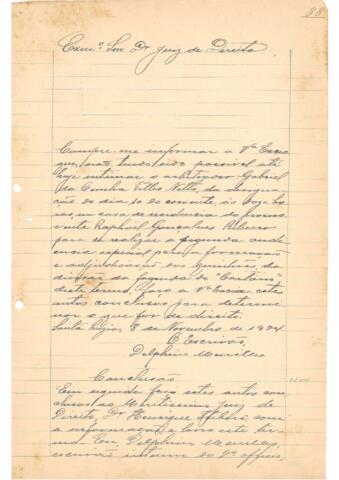 88
Exmo. Snr. Dr. Juiz de Direito
Cumpre-me informar a Va. Excia
que, não tendo sido possivel até
hoje intimar o arbitrador Gabriel
da Cunha Velloso Netto, da designa-
ção do dia 10 do corrente, ás doze ho-
ras, na casa de residencia do promo-
vente Raphael Gonçalves Ribeiro
para se realizar a segunda audi-
encia especial para a formação
e adjudicação dos quinhões, da
divisão da fazenda do Caetano,
deste termo, faço a Va. Excia. estes
autos conclusos para determi-
nar o que for de direito.
Santa Luzia, 8 de Novembro de 1924.
O Escrivão,
Delphim
Conclusão
Em seguida faço estes autos con-
clusos ao Meritissimo Juiz de
Direito, Dr. Henrique, com
a informação e lavro este ter-
mo. Eu, Delphim
escrivão interino do 2º officio,